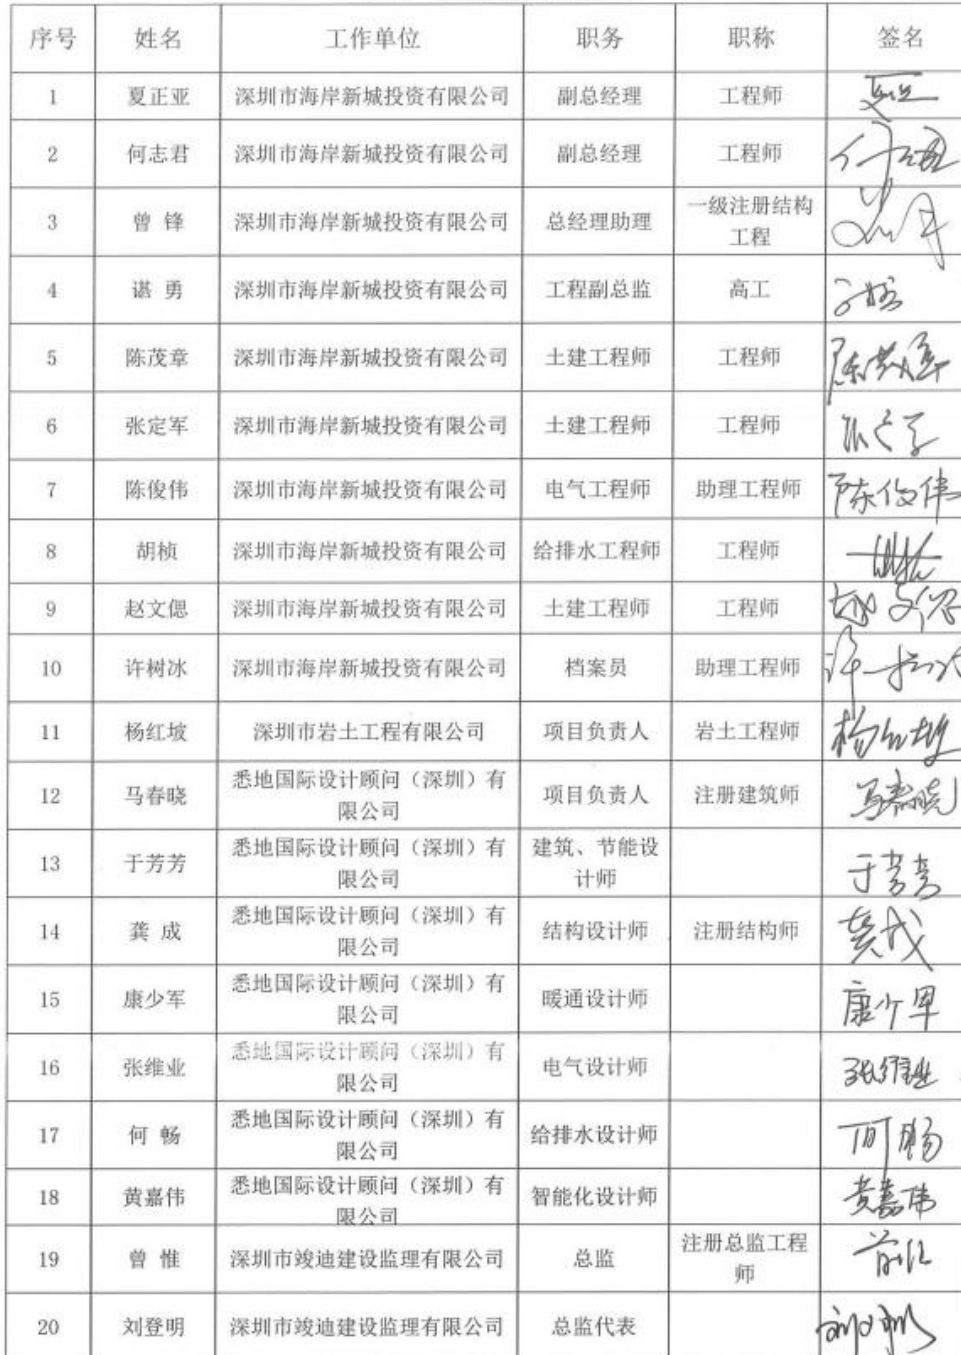 序号 姓名 工作单位 职务 职称 签名
1 夏正亚 深圳市海岸新城投资有限公司 副总经理 工程师
2 何志君 深圳市海岸新城投资有限公司 副总经理 工程师
3 曾 锋 深圳市海岸新城投资有限公司 总经理助理 一级注册结构
工程
4 谌 勇 深圳市海岸新城投资有限公司 工程副总监 高工
5 陈茂章 深圳市海岸新城投资有限公司 土建工程师 工程师 陈茂章
6 张定军 深圳市海岸新城投资有限公司 土建工程师 工程师
7 陈俊伟 深圳市海岸新城投资有限公司 电气工程师 助理工程师 陈俊伟
8 胡桢 深圳市海岸新城投资有限公司 给排水工程师 工程师
9 赵文偲 深圳市海岸新城投资有限公司 土建工程师 工程师
10 许树冰 深圳市海岸新城投资有限公司 档案员 助理工程师
11 杨红坡 深圳市岩土工程有限公司 项目负责人 岩土工程师 杨红坡
12 马春晓 悉地国际设计顾问（深圳）有
限公司 项目负责人 注册建筑师 马春晓
13 于芳芳 悉地国际设计顾问（深圳）有
限公司 建筑、节能设
计师 于芳芳
14 龚 成 悉地国际设计顾问（深圳）有
限公司 结构设计师 注册结构师 龚成
15 康少军 悉地国际设计顾问（深圳）有
限公司 暖通设计师 康少军
16 张维业 悉地国际设计顾问（深圳）有
限公司 电气设计师 张维业
17 何 畅 悉地国际设计顾问（深圳）有
限公司 给排水设计师 何畅
18 黄嘉伟 悉地国际设计顾问（深圳）有
限公司 智能化设计师 黄嘉伟
19 曾 惟 深圳市竣迪建设监理有限公司 总监 注册总监工程
师
20 刘登明 深圳市竣迪建设监理有限公司 总监代表